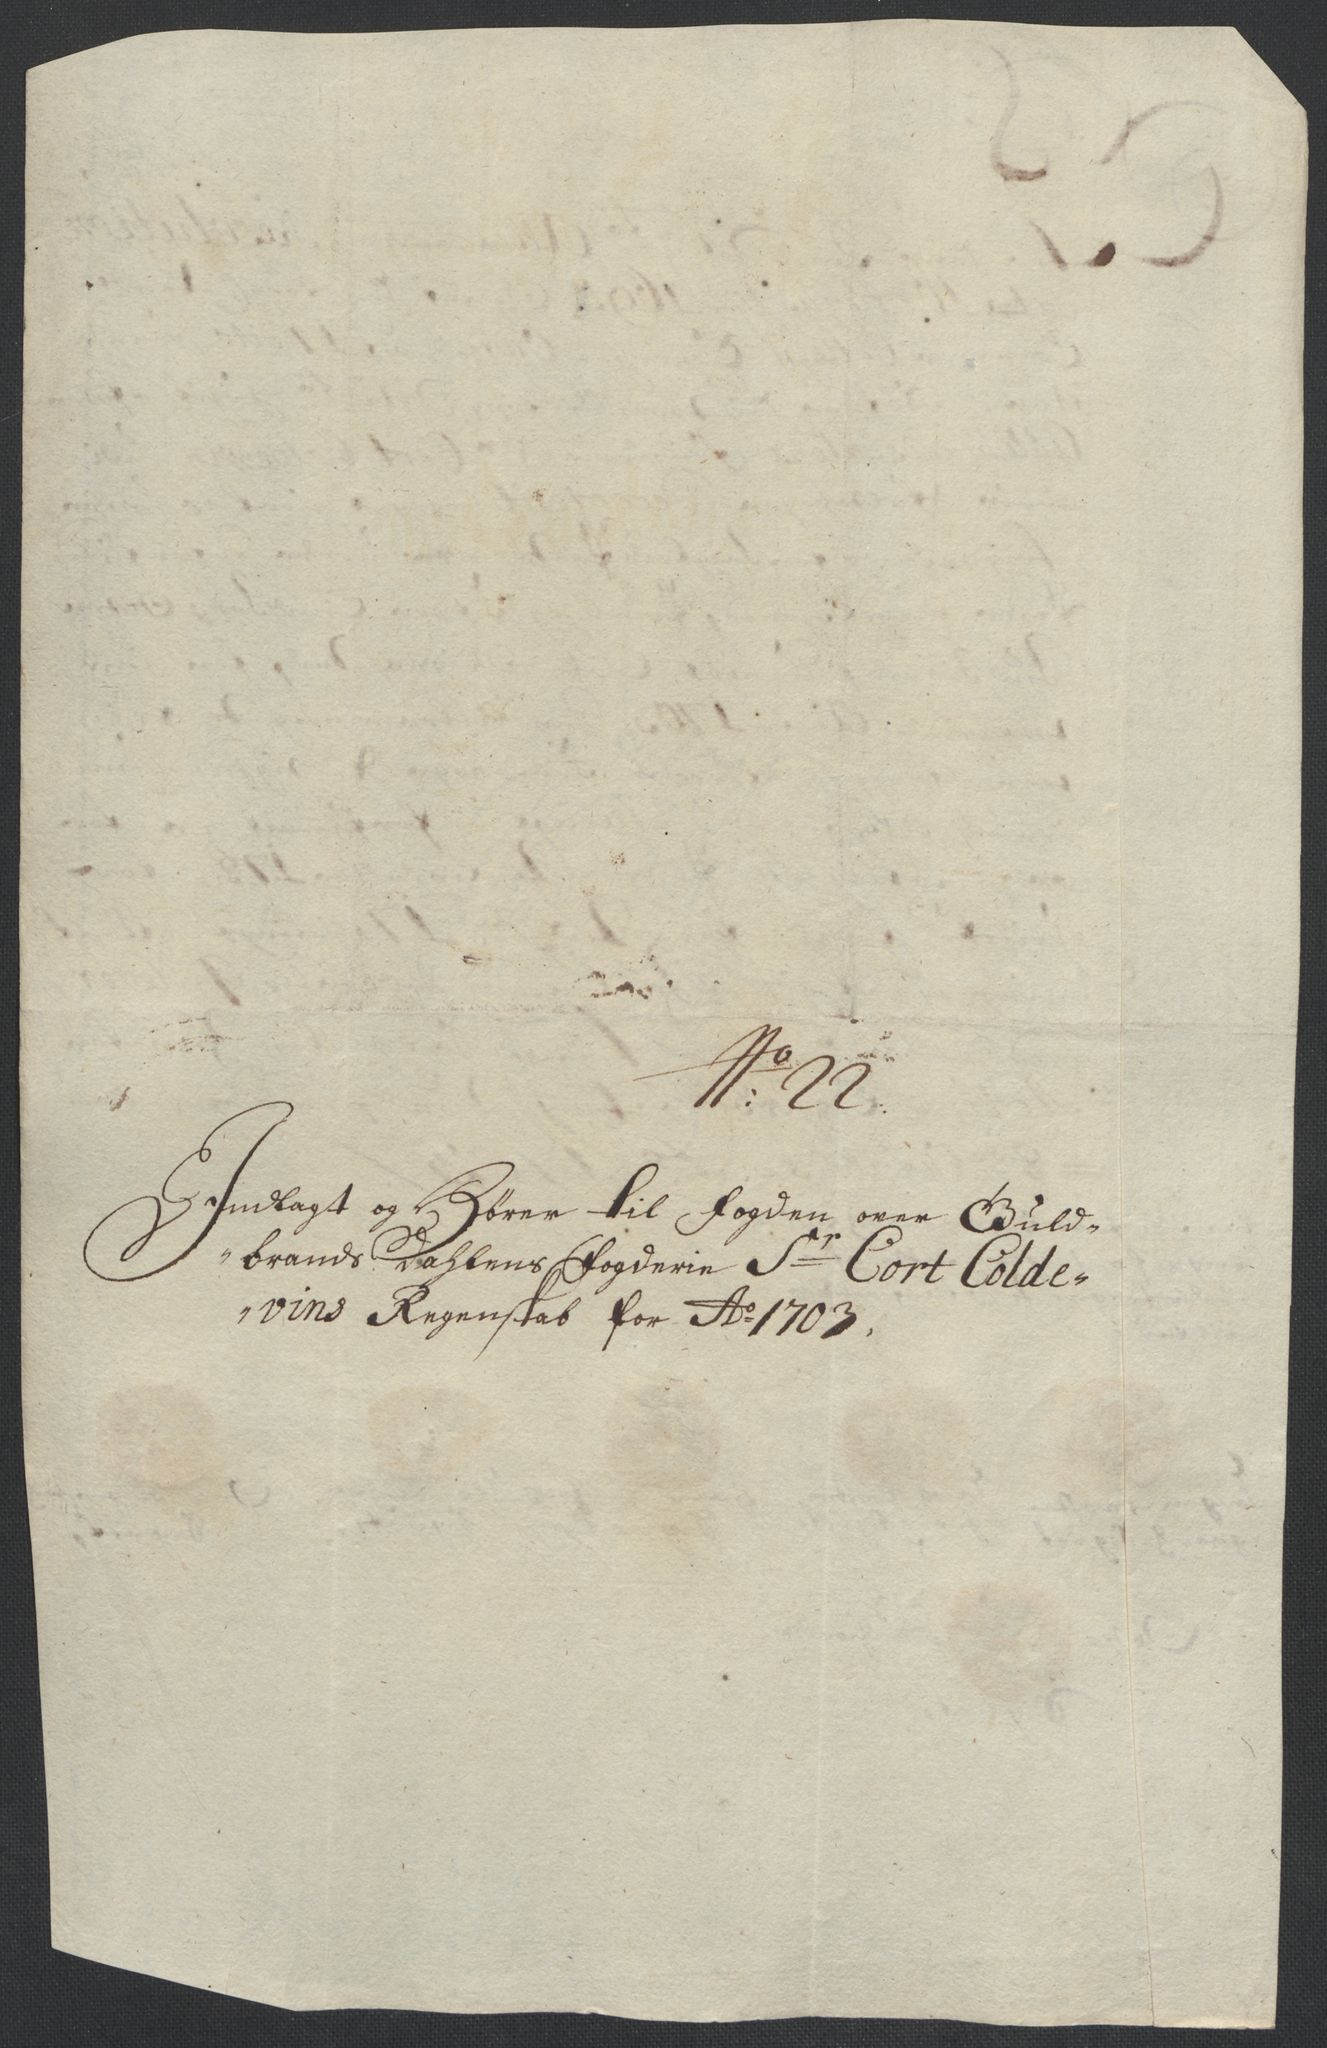 No: 22.
Indlagt og Hører til fogden over Guld-
-brands Dahlens fogderie Sr Cort Colde-
-vins Regenskab for Ao 1703.